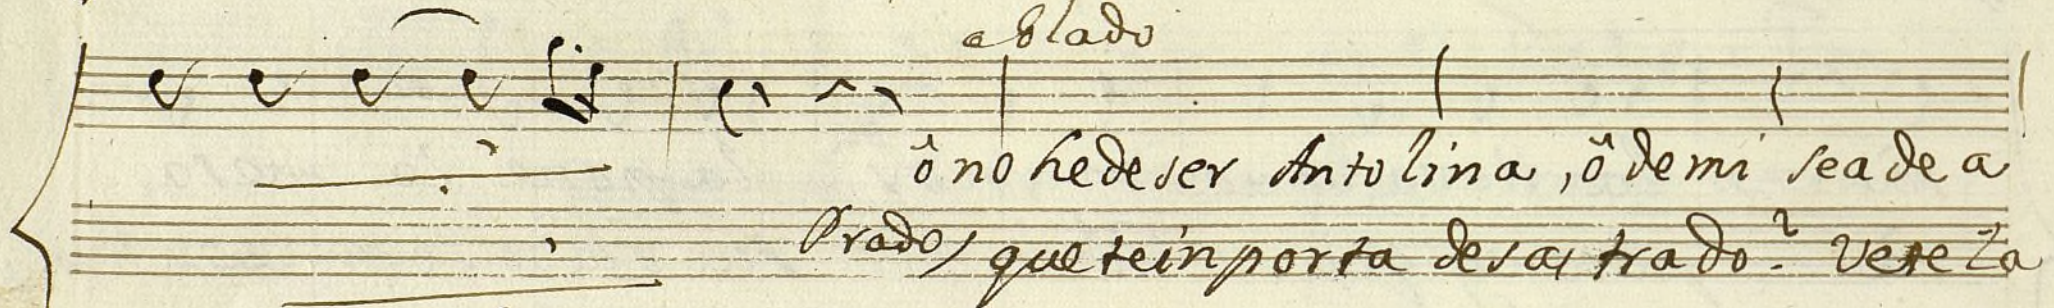 ablado
ô no he de ser Antolina, ô de mi sea de a
Prado, que te inporta desastrado? vete la